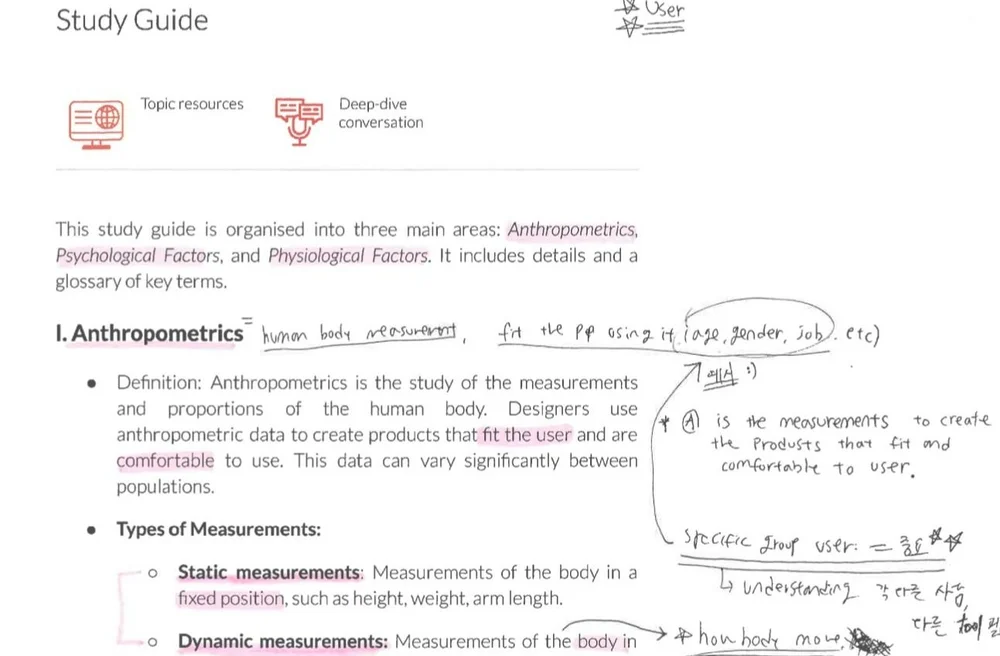 Study Guide
User
Topic resources
Deep-dive
conversation
This study guide is organised into three main areas: Anthropometrics,
Psychological Factors, and Physiological Factors. It includes details and a
glossary of key terms.
I. Anthropometrics = human body measurement, fit the PP using it (age, gender, job. etc)
예시 :)
• Definition: Anthropometrics is the study of the measurements
and proportions of the human body. Designers use
anthropometric data to create products that fit the user and are
comfortable to use. This data can vary significantly between
populations.
* Ⓐ is the measurements to create
the products that fit and
comfortable to user.
• Types of Measurements:
specific group user: = 중요
↳ understanding 각 다른 사람,
다른 tool
○ Static measurements: Measurements of the body in a
fixed position, such as height, weight, arm length.
○ Dynamic measurements: Measurements of the body in
→ * how body move,